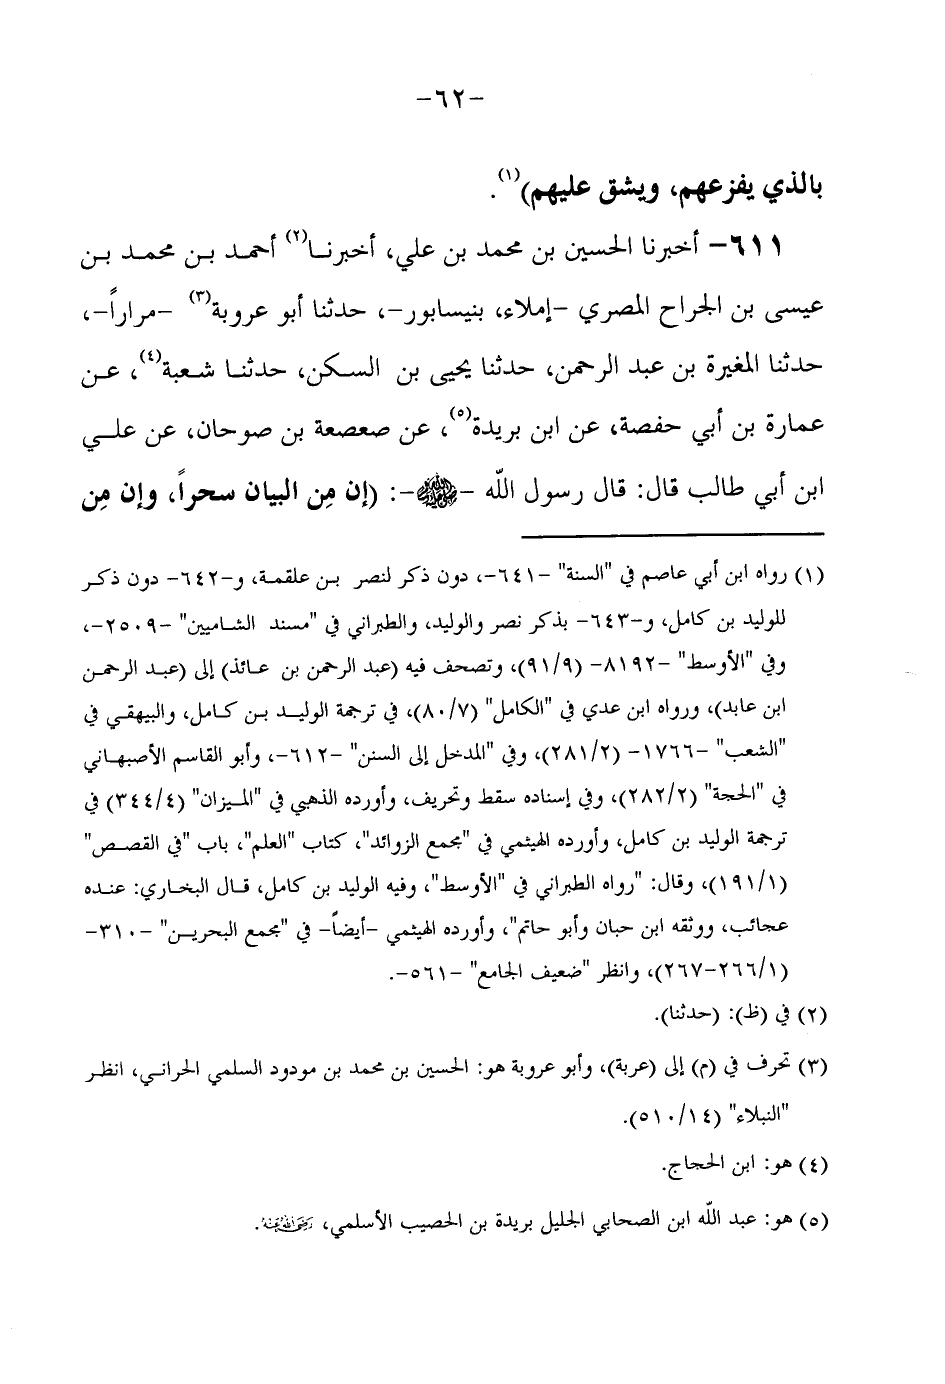 -٦٢-
بالذي يفزعهم، ويشق عليهم)(١).
٦١١- أخبرنا الحسين بن محمد بن علي، أخبرنـا(٢) أحمـد بـن محمـد بـن
عيسى بن الجراح المصري -إملاء، بنيسابور-، حدثنا أبو عروبة(٣) -مراراً-،
حدثنا المغيرة بن عبد الرحمن، حدثنا يحيى بن السـكن، حدثنـا شـعبة(٤)، عـن
عمارة بن أبي حفصة، عن ابن بريدة(٥)، عن صعصعة بن صوحان، عن علـي
ابن أبي طالب قال: قال رسول اللّه -ﷺ-: (إن مِن البيان سحراً، وإن مِن
(١) رواه ابن أبي عاصم في "السنة" -٦٤١-، دون ذكر لنصر بـن علقمـة، و-٦٤٢- دون ذكـر
للوليد بن كامل، و-٦٤٣- بذكر نصر والوليد، والطبراني في "مسند الشـاميين" -٢٥٠٩-،
وفي "الأوسط" -٨١٩٢- (٩١/٩)، وتصحف فيه (عبد الرحمن بن عـائذ) إلى (عبـد الرحمـن
ابن عابد)، ورواه ابن عدي في "الكامل" (٨٠/٧)، في ترجمة الوليـد بـن كـامل، والبيهقـي في
"الشعب" -١٧٦٦- (٢٨١/٢)، وفي "المدخل إلى السنن" -٦١٢-، وأبو القاسم الأصبهـاني
في "الحجة" (٢٨٢/٢)، وفي إسناده سقط وتحريف، وأورده الذهبي في "المـيزان" (٣٤٤/٤) في
ترجمة الوليد بن كامل، وأورده الهيثمي في "مجمع الزوائد"، كتاب "العلم"، باب "في القصـص"
(١٩١/١)، وقال: "رواه الطبراني في "الأوسط"، وفيه الوليد بن كامل، قـال البخـاري: عنـده
عجائب، ووثقه ابن حبان وأبو حاتم"، وأورده الهيثمي -أيضاً- في "مجمع البحريـن" -٣١٠-
(٢٦٦/١-٢٦٧)، وانظر "ضعيف الجامع" -٥٦١-.
(٢) في (ظ): (حدثنا).
(٣) تحرف في (م) إلى (عربة)، وأبو عروبة هو: الحسين بن محمد بن مودود السلمي الحرانـي، انظـر
"النبلاء" (٥١٠/١٤).
(٤) هو: ابن الحجاج.
(٥) هو: عبد اللّه ابن الصحابي الجليل بريدة بن الحصيب الأسلمي، رضي الله عنه.